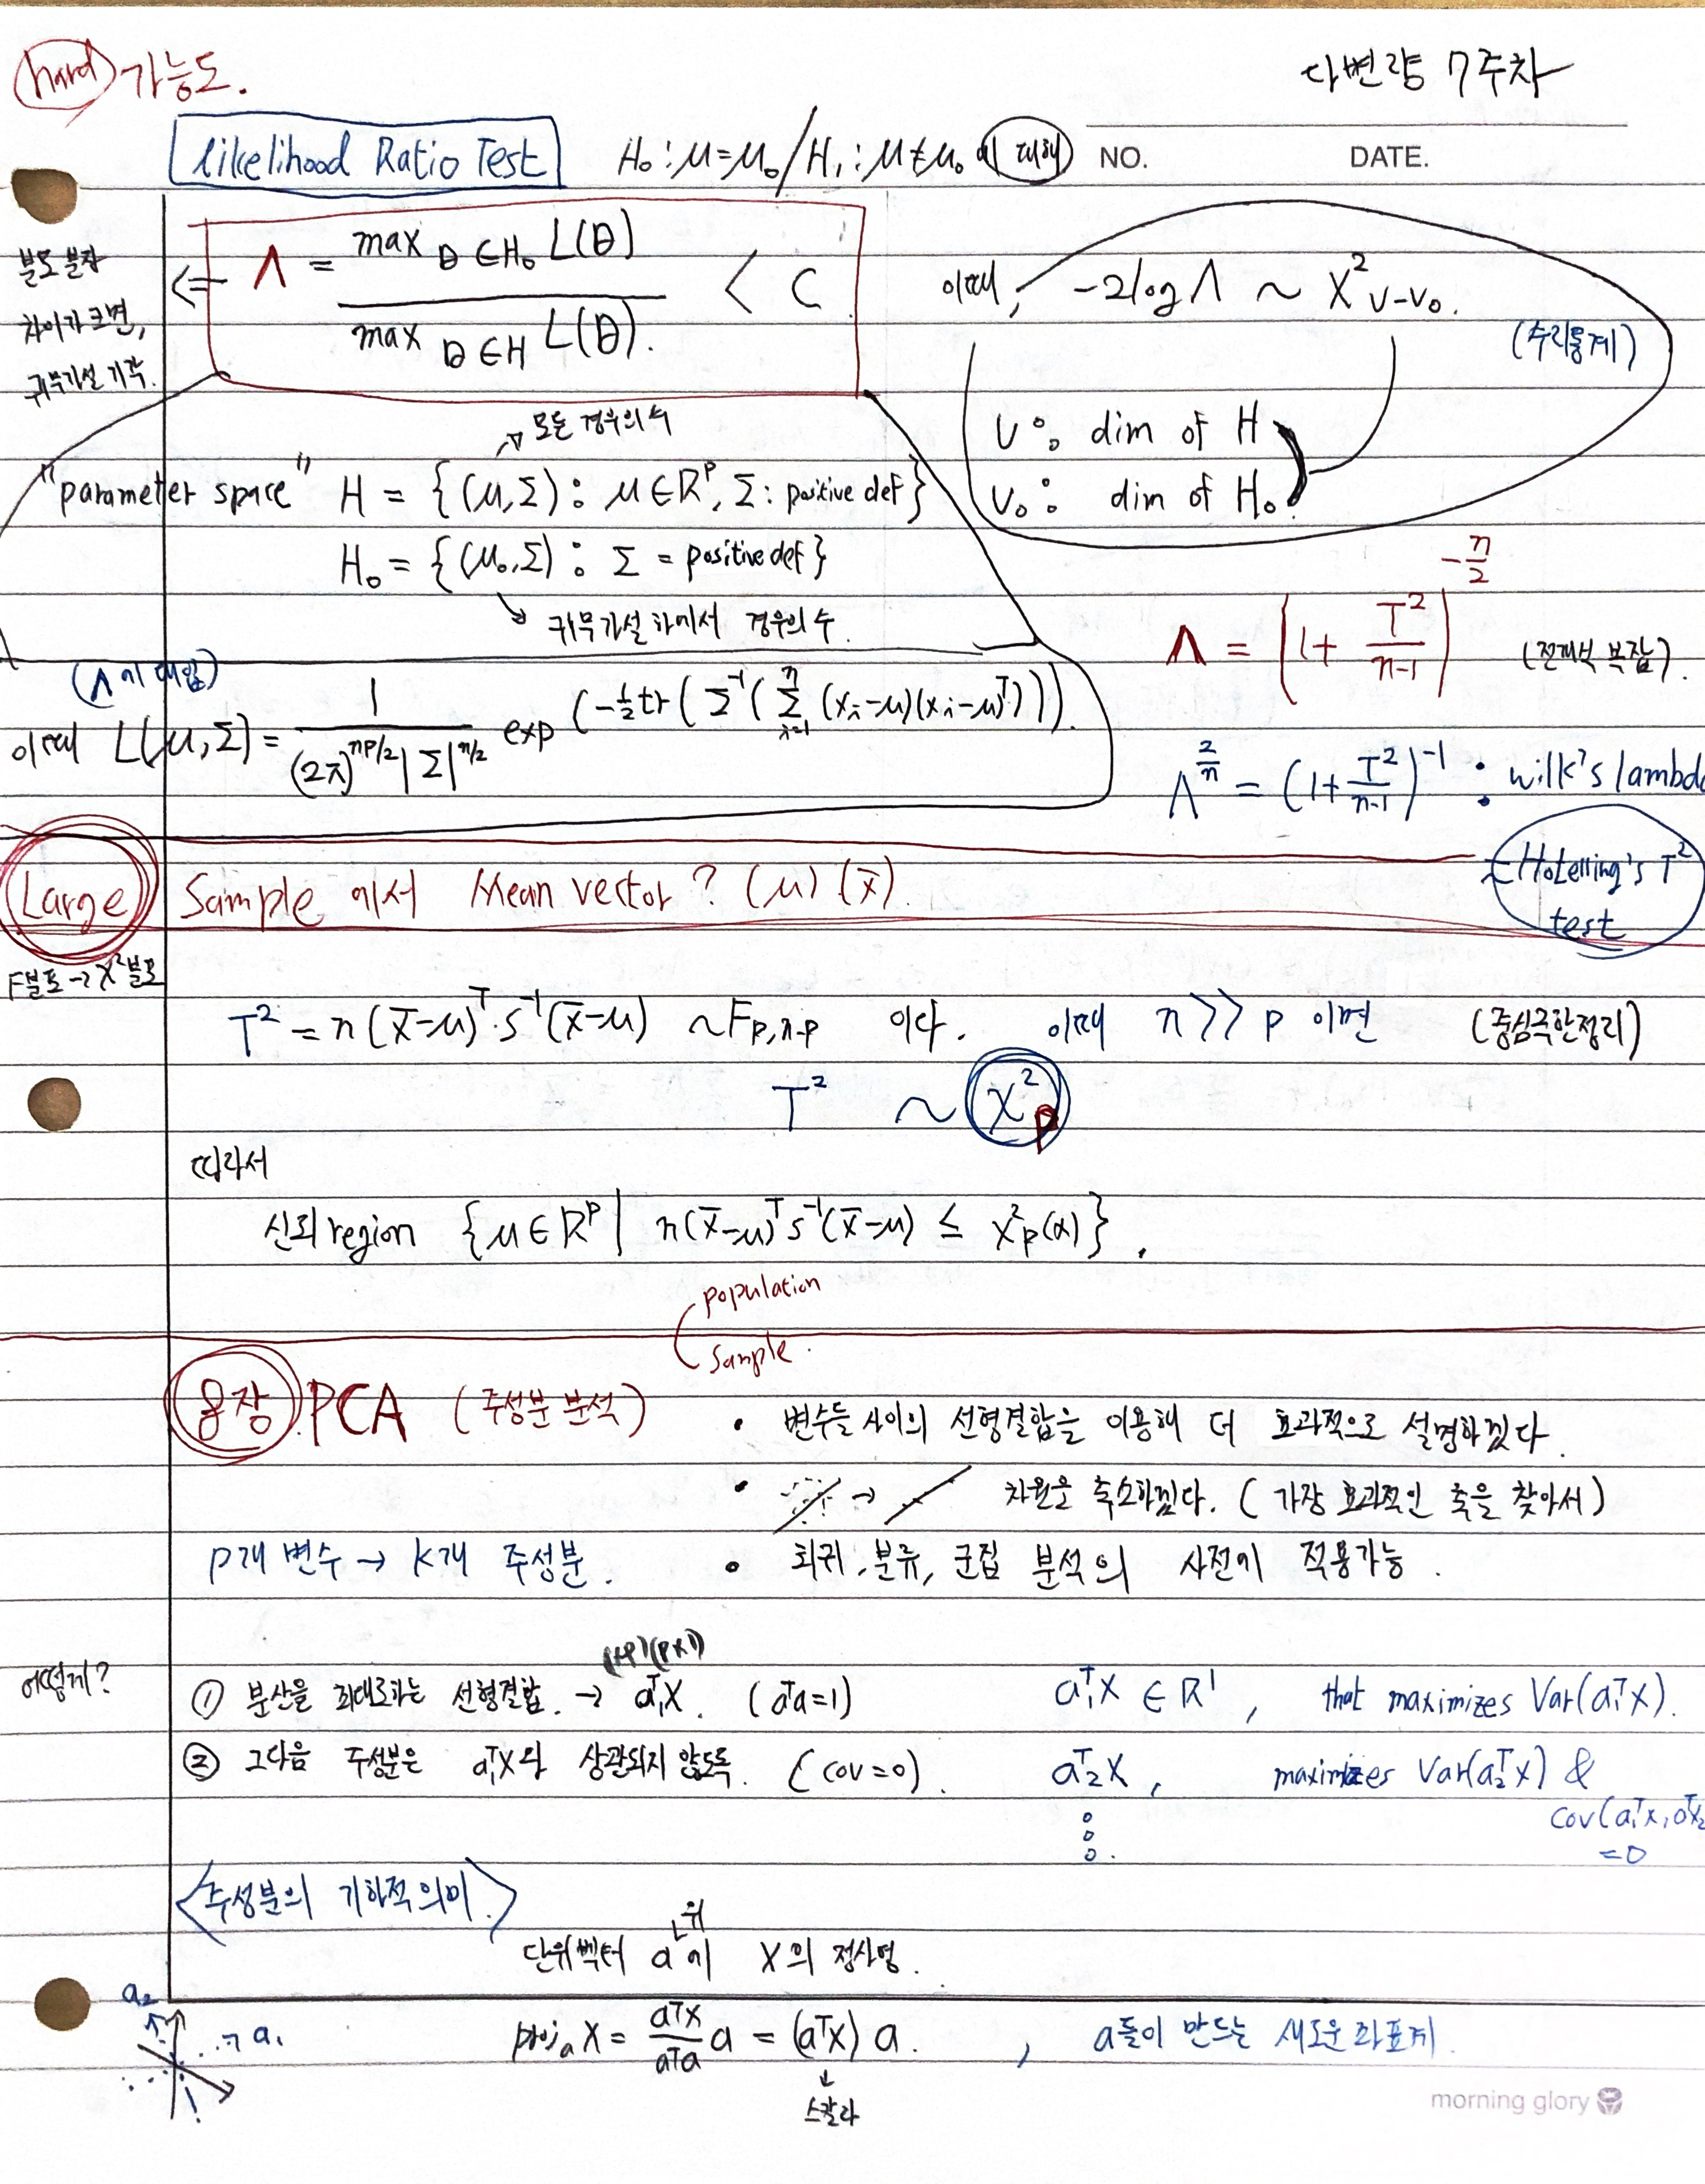 hard 가능도.
다변량 7주차
Likelihood Ratio Test H₀ : μ=μ₀ / H₁ : μ≠μ₀ 에 대해
NO. DATE.
분모 분자
차이가 크면,
귀무가설 기각.
⇐ Λ = max θ∈H₀ L(θ) / max θ∈H L(θ). < C
이때, -2log Λ ~ χ² ν-ν₀.
(수리통계)
ν : dim of H
ν₀ : dim of H₀.
→ 모든 경우의 수
"parameter space" H = {(μ,Σ) : μ∈ℝᵖ, Σ : positive def}
H₀ = {(μ₀,Σ) : Σ = positive def}
↘ 귀무가설 하에서 경우의 수.
Λ = (1 + T²/(n-1))^(-n/2) (전개식 복잡).
(Λ에 대입)
이때 L(μ,Σ) = 1/((2π)^(np/2) |Σ|^(n/2)) exp(-½tr(Σ⁻¹(Σⁿᵢ₌₁ (xᵢ-μ)(xᵢ-μ)ᵀ))).
Λ^(2/n) = (1 + T²/(n-1))⁻¹ : wilk's lambda
Hotelling's T²
test
Large Sample 에서 Mean vector? (μ) (x̄).
F분포→χ²분포
T² = n(x̄-μ)ᵀ·s⁻¹(x̄-μ) ~ F p,n-p 이다. 이때 n>>p 이면 (중심극한정리)
T² ~ χ²p
따라서
신뢰region {μ∈ℝᵖ | n(x̄-μ)ᵀs⁻¹(x̄-μ) ≤ χ²p(α)}.
population
sample.
8장. PCA (주성분 분석)
• 변수들 사이의 선형결합을 이용해 더 효과적으로 설명하겠다.
• → 차원을 축소하겠다. (가장 효과적인 축을 찾아서)
p개 변수 → k개 주성분.
• 회귀, 분류, 군집 분석의 사전에 적용가능.
어떻게?
(1×p)(p×1)
① 분산을 최대로하는 선형결합. → a₁ᵀX. (aᵀa=1) a₁ᵀX ∈ ℝ¹, that maximizes Var(a₁ᵀX).
② 그다음 주성분은 a₁ᵀX와 상관되지 않도록. (cov=0). a₂ᵀX, maximizes Var(a₂ᵀX) &
cov(a₁ᵀX, aᵀX₂
=0
<주성분의 기하적 의미.>
위
단위벡터 a에 X의 정사영.
a₂
a₁
projₐX = aᵀX/aᵀa a = (aᵀX) a. , a들이 만드는 새로운 좌표계.
↓
스칼라
morning glory